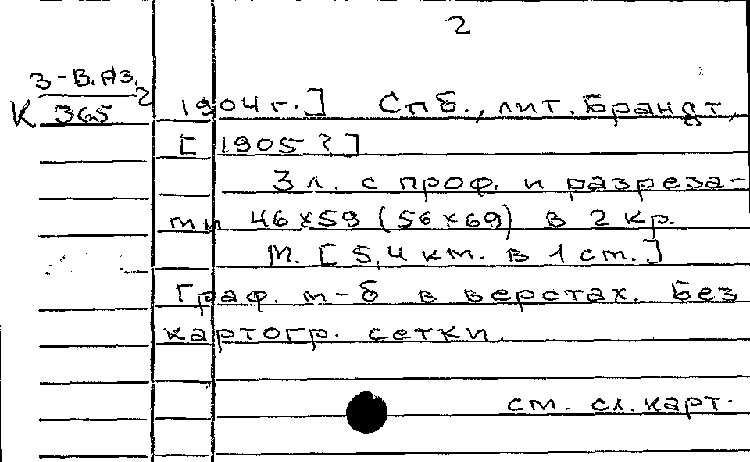 2
3-В.Аз.
К 365 2
1904 г.] Спб., лит. Брандт,
[1905?]
3 л. с проф. и разреза-
ми 46х59 (56х69) в 2 кр.
М. [5,4 км. в 1 см.]
Граф. м-б в верстах. Без
картогр. сетки.
см. сл. карт.